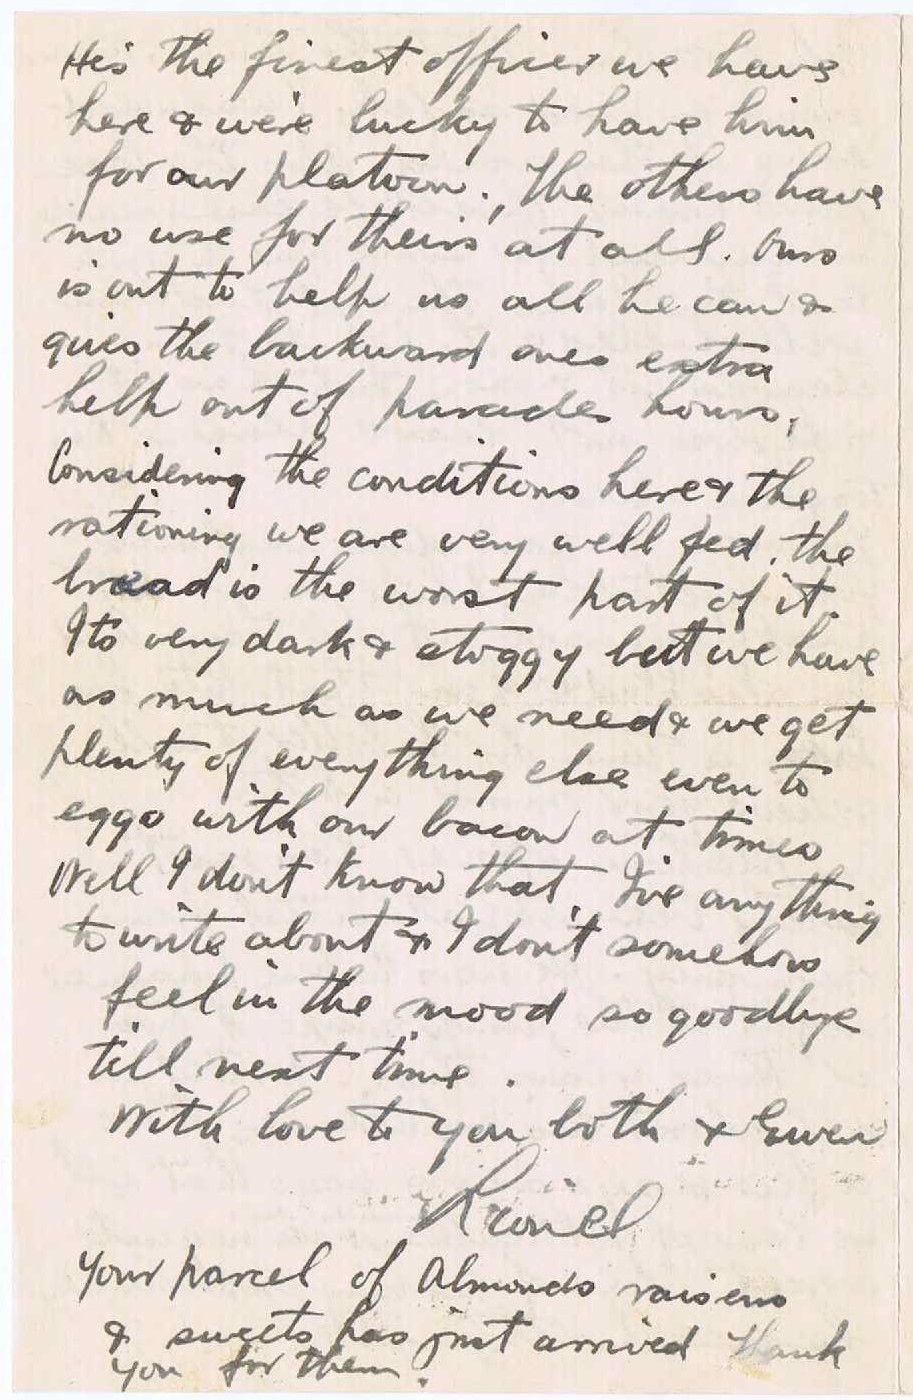 He's the finest officer we have
here & we're lucky to have him
for our platoon. The others have
no use for theirs at all. Ours
is out to help us all he can &
gives the backward ones extra
help out of parades hours,
Considering the conditions here & the
rationing we are very well fed. the
bread is the worst part of it.
Its very dark & stoggy but we have
as much as we need & we get
plenty of everything else even to
eggs with our bacon at times
Well I don't know that, I've anything
to write about & I don't somehow
feel in the mood so goodbye
till next time.
With love to you both & Ewen
Lionel
Your parcel of Almonds raisens
& sweets has just arrived Thank
you for them.